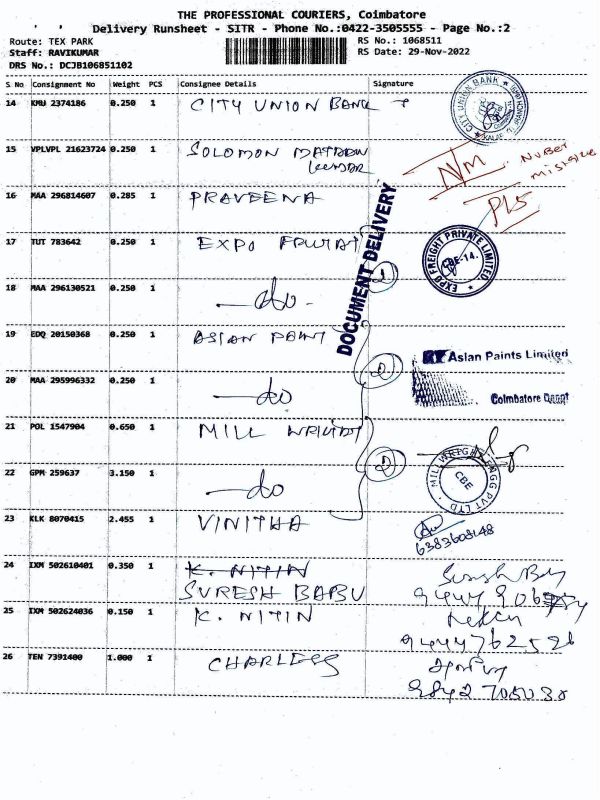 THE PROFESSIONAL COURIERS, Coimbatore
Delivery Runsheet - SITR - Phone No.:0422-3505555 - Page No.:2
Route: TEX PARK
RS No.: 1068511
Staff: RAVIKUMAR
RS Date: 29-Nov-2022
DRS No.: DCJB106851102
S No Consignment No Weight PCS Consignee Details Signature
14 KMU 2374186 0.250 1 CITY UNION BANK
CITY UNION BANK
15 VPLVPL 21623724 0.250 1 SOLOMON
N/M
16 MAA 296814607 0.285 1 PRAVEENA
DOCUMENT DELIVERY
17 TUT 783642 0.250 1 EXPO
EXPO FREIGHT PRIVATE LIMITED
CBE-14.
18 MAA 296130521 0.250 1 do
1
19 EDQ 20150368 0.250 1 ASIAN PAINT
Asian Paints Limited
Coimbatore Depot
20 MAA 295996332 0.250 1 do
2
21 POL 1547904 0.650 1 MILL
MILLWRIGHT ENGG PVT LTD
CBE
22 GPM 259637 3.150 1 do
2
23 KLK 8070415 2.455 1 VINITHA
24 IXM 502610401 0.350 1 K. NITIN
SURESH BABU
25 IXM 502624036 0.150 1 K. NITIN
26 TEN 7391400 1.000 1
9842705030